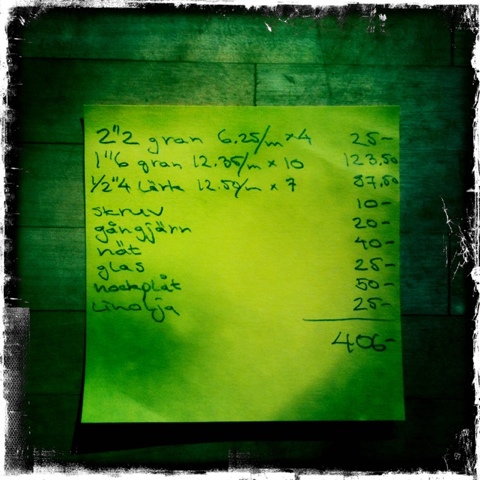 2"2 gran 6.25/m x4 25-
1"6 gran 12.35/m x 10 123,50
1/2"4 Lärk 12.50/m x 7 87,50
skruv 10-
gångjärn 20-
nät 40-
glas 25-
nockplåt 50-
Linolja 25-
406-